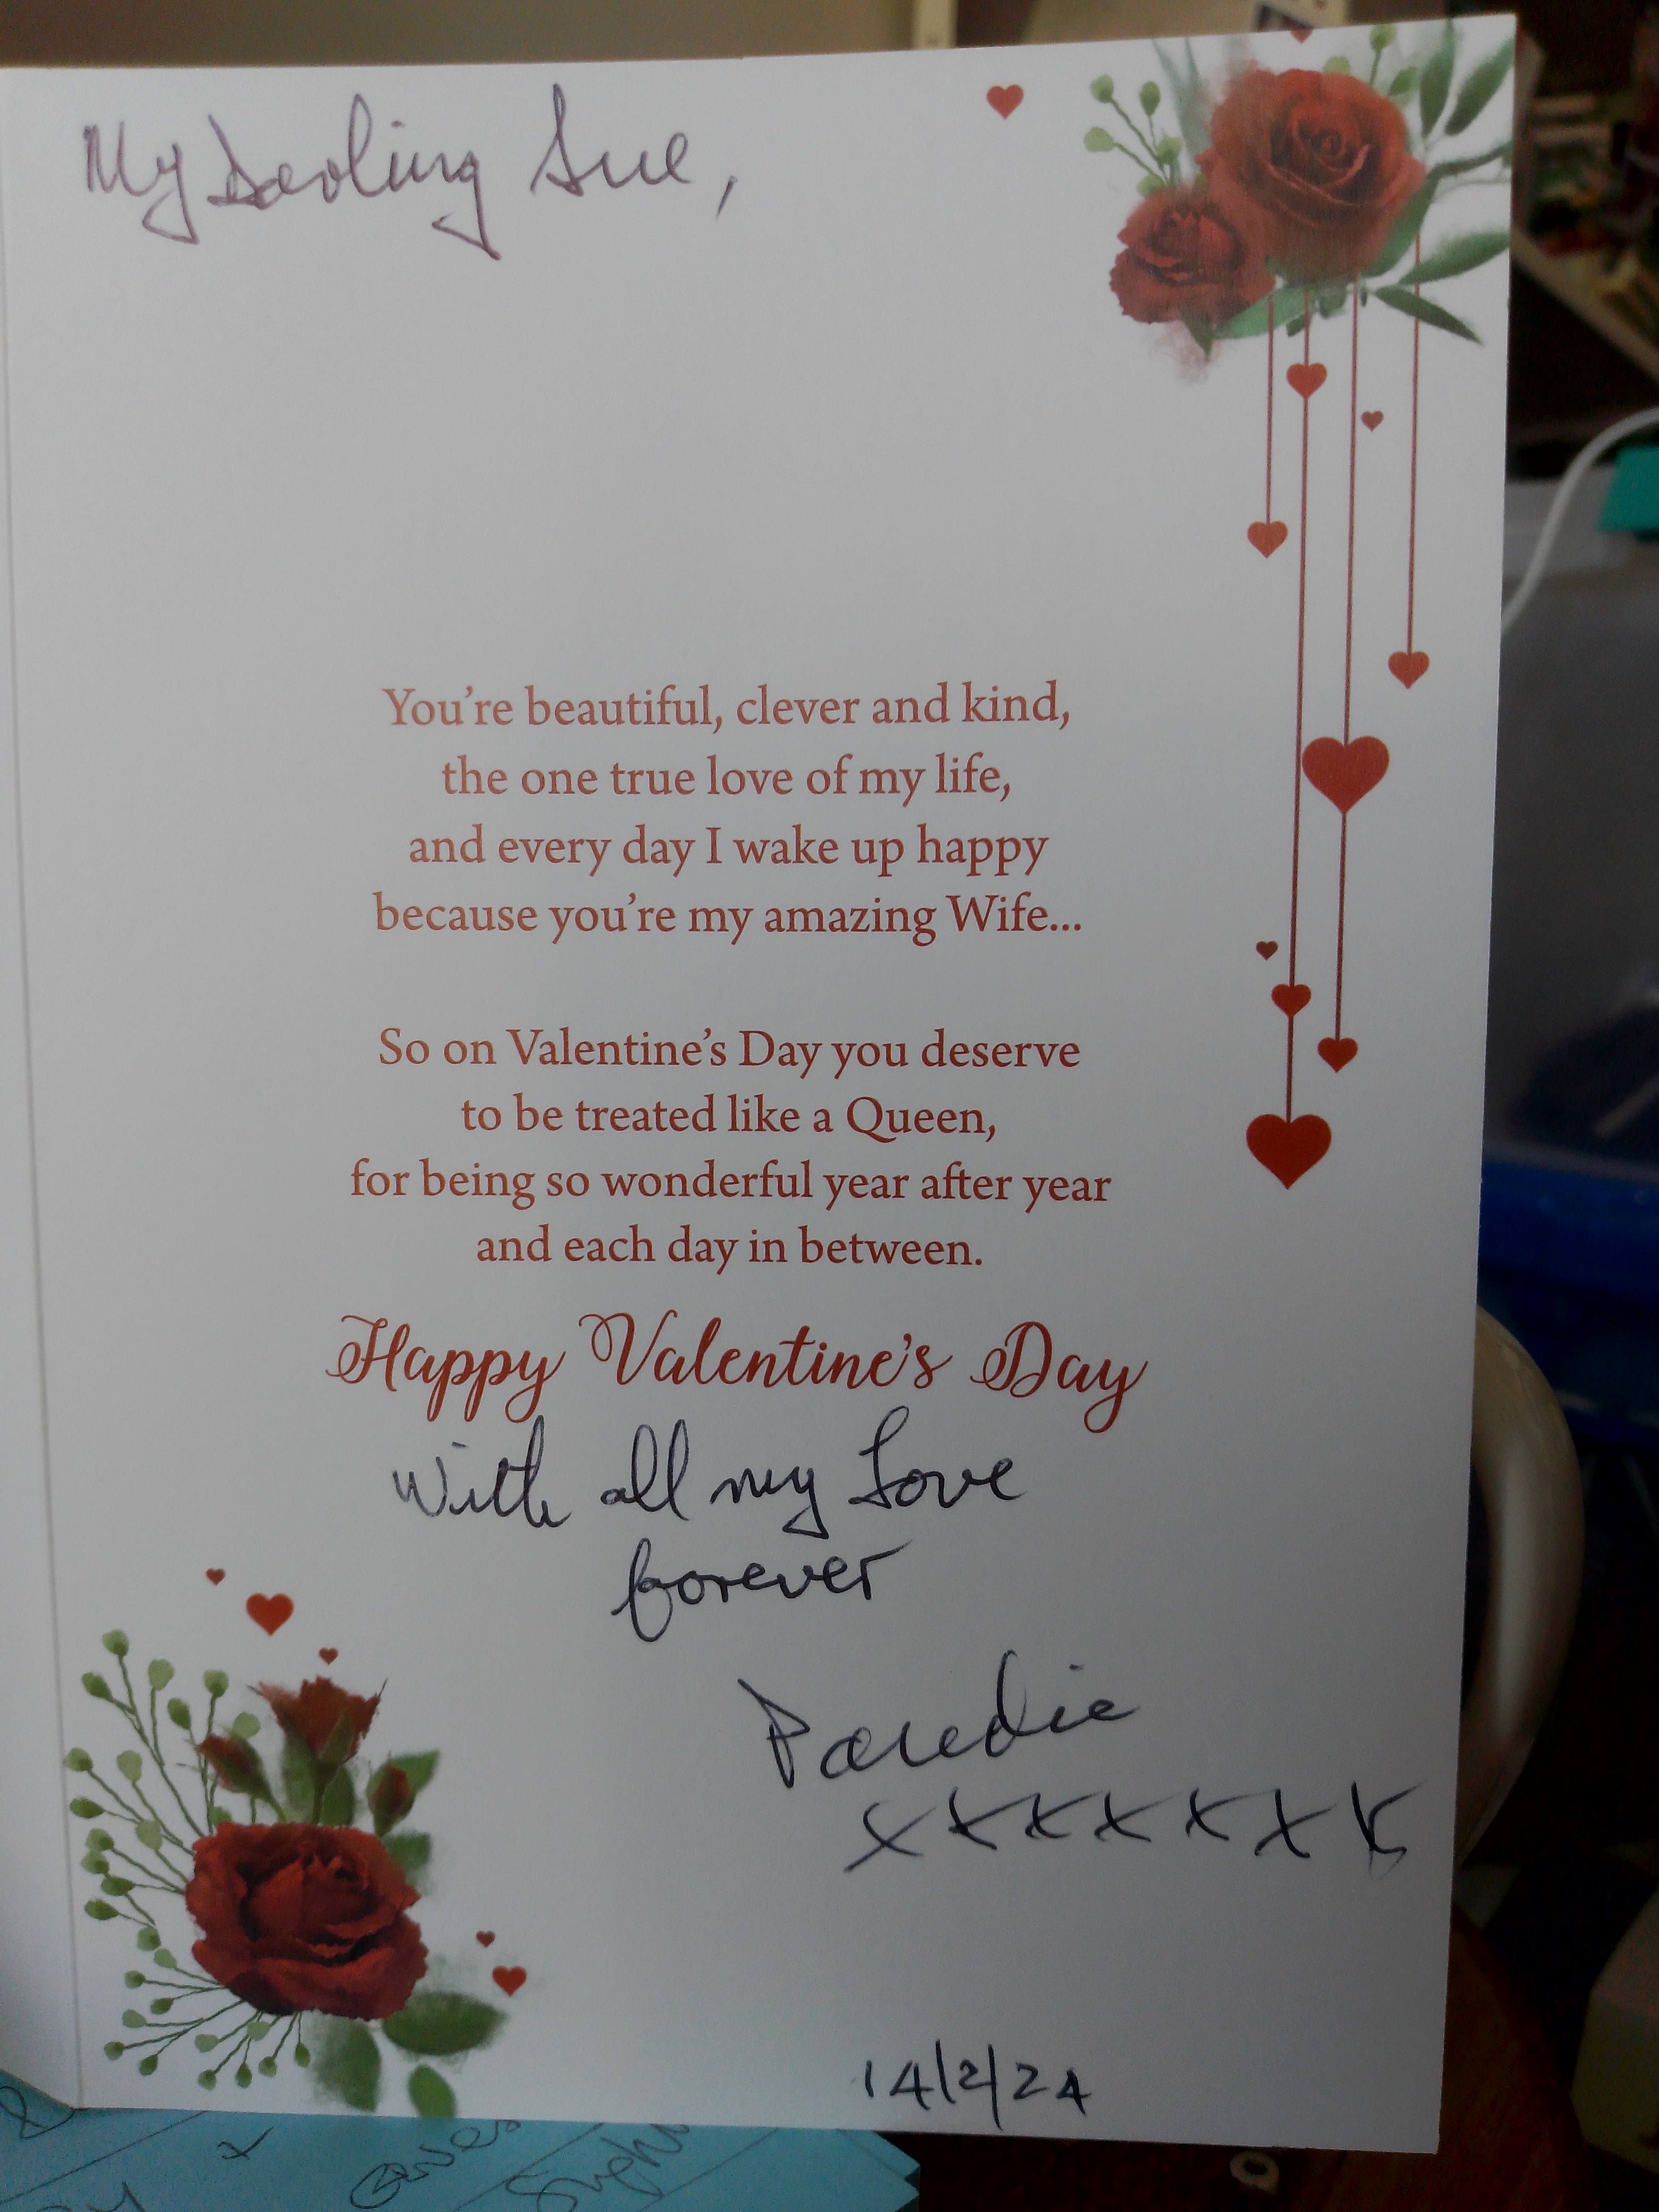 My Darling Sue,
You're beautiful, clever and kind,
the one true love of my life,
and every day I wake up happy
because you're my amazing Wife...
So on Valentine's Day you deserve
to be treated like a Queen,
for being so wonderful year after year
and each day in between.
Happy Valentine's Day
With all my Love
forever
xxxxxxx
14/2/24